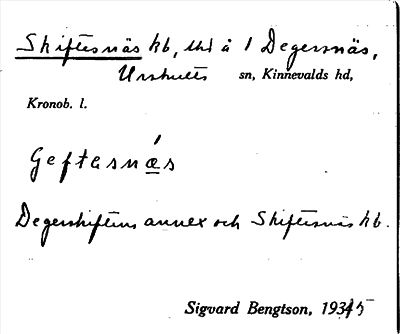 Skiftesnäs hb, uti å 1 Degersnäs,
Urshults sn, Kinnevalds hd,
Kronob. l.
Geftasnǽ̱s
Degershiftens annex och Skiftesnäs hb.
Sigvard Bengtson, 1935